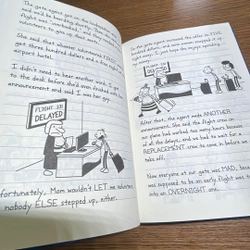 The gate agent got on the
and said
they'd be
volunteers to give up
was
She said that whoever volunteered
get three hundred dollars and a
airport hotel.
I didn't need to hear another word. I got
to the desk before she'd even finished
announcement and said I was her guy.
FLIGHT
DELAYED
Unfortunately, Mom wouldn't LET me volunteer
nobody ELSE stepped up, either.
the gate agent increased the offer to FIVE
hundred dollars, and some
right away. I just hope they
DELAYED
After that, the agent made ANOTHER
announcement. She said the flight crew on
our plane had worked too many hours because
of all the delays, and we had to wait for a
REPLACEMENT crew to come in before we
take off.
Now everyone at our gate was MAD, because
was supposed to be an early flight was
into an OVERNIGHT one.